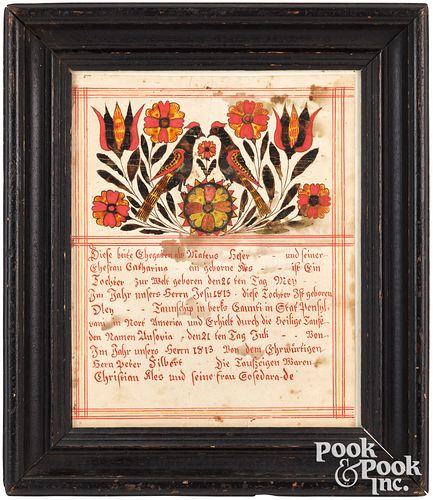 Diese beite Ehegaten als Mateus Heser - und seiner
Ehefrau Catharina an geborne Kles ist Ein
Tochter zur Welt geboren den 26 ten Tag Mey
Im Jahr unsers Herrn Jesu 1813 - diese Tochter Ist geboren
Oley - Taunschip in berks Caunti in Staf Pensyl-
vani in Nort America und Erhielt durch die Heilige Taufe
den Namen - den 21 ten Tag Juli - Von-
Im Jahr unsers Herrn 1813 Von dem Ehrwürtigen
Hern Peter Filbert Die Taufzeigen Waren
Christian Kles und seine frau
POOK
& POOK
INC.